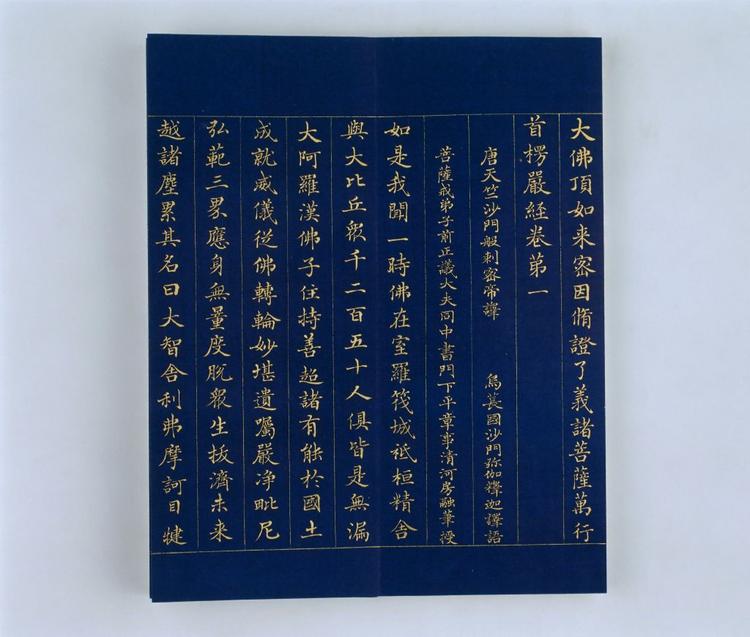 大佛頂如来宻因脩證了義諸菩薩萬行
首楞嚴経卷苐一
唐天竺沙門般剌宻帝譯 烏萇國沙門弥伽釋迦譯語
菩薩戒弟子前正議大夫同中書門下平章事清河房融筆授
如是我聞一時佛在室羅筏城祗桓精舎
與大比丘衆千二百五十人俱皆是無漏
大阿羅漢佛子住持善超諸有能於國土
成就威儀從佛轉輪妙堪遺囑嚴净毗尼
弘範三界應身無量度脱衆生拔濟未来
越諸塵累其名曰大智舎利弗摩訶目揵